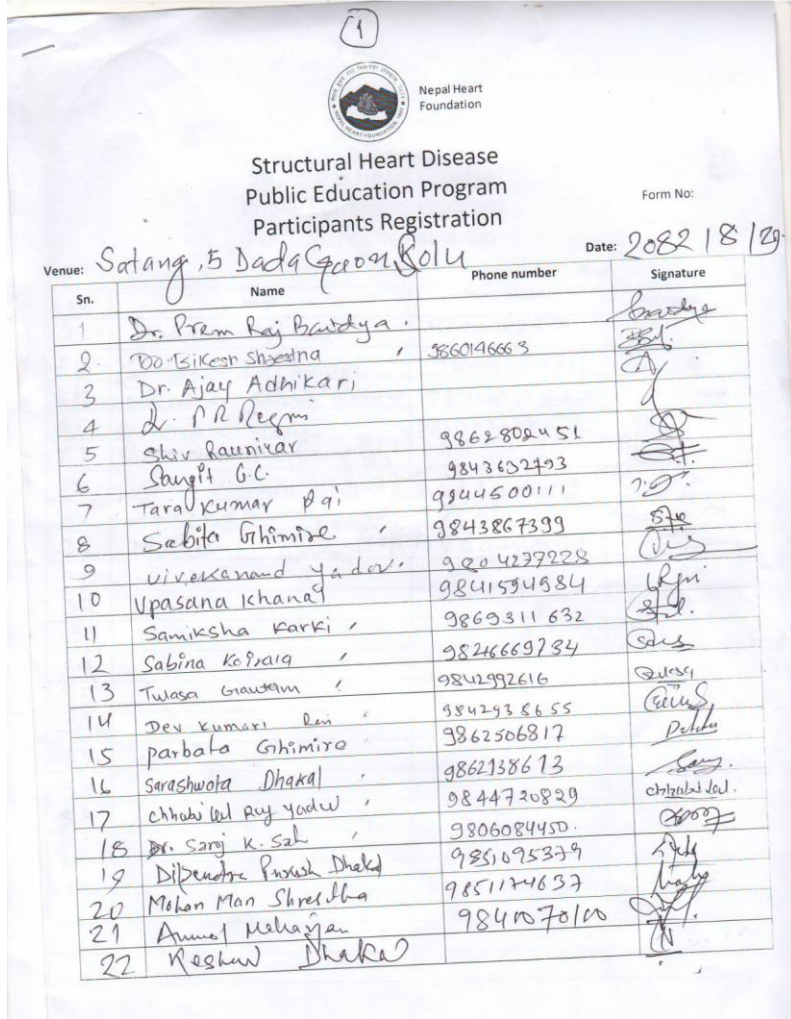 1
Nepal Heart
Foundation
Structural Heart Disease
Public Education Program
Participants Registration
Form No:
Venue: Satang, 5 Dada Gaon, Solu Date: 2082/8/29
Sn. Name Phone number Signature
1 Dr. Prem Raj Baidya
2. Do. Bikesh Shrestha 9860146663
3 Dr. Ajay Adhikari
4 Dr. P R Regmi
5 Shiv Raunivar 9862802451
6 Sangit G.C. 9843632793
7 Tara Kumar Rai 9844500111
8 Sabita Ghimire 9843867399
9 vivekanand yadav. 9804277228
10 Upasana Khanal 9841594984
11 Samiksha Karki 9869311632
12 Sabina Koirala
13 Tulasa Gautam 9842992616
14 Dev Kumari Rai
15 parbata Ghimire 9862506817
16 Sarashwota Dhakal 9862138613
17 chhabi lal Ray yadav 9844720829 chhabi lal.
18 Dr. Saroj K. Sah 9806084450.
19 Dhakal 9851095379
20 Mohan Man Shrestha 9851174637
21 Anmol Maharjan 9840070100
22 Keshav Dhakal